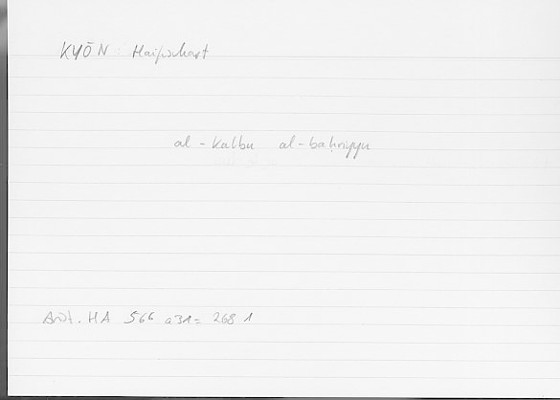 KYŌN : Haifischart
al-kalbu al-baḥriyyu
Arist. HA 566 a31 = 268 1